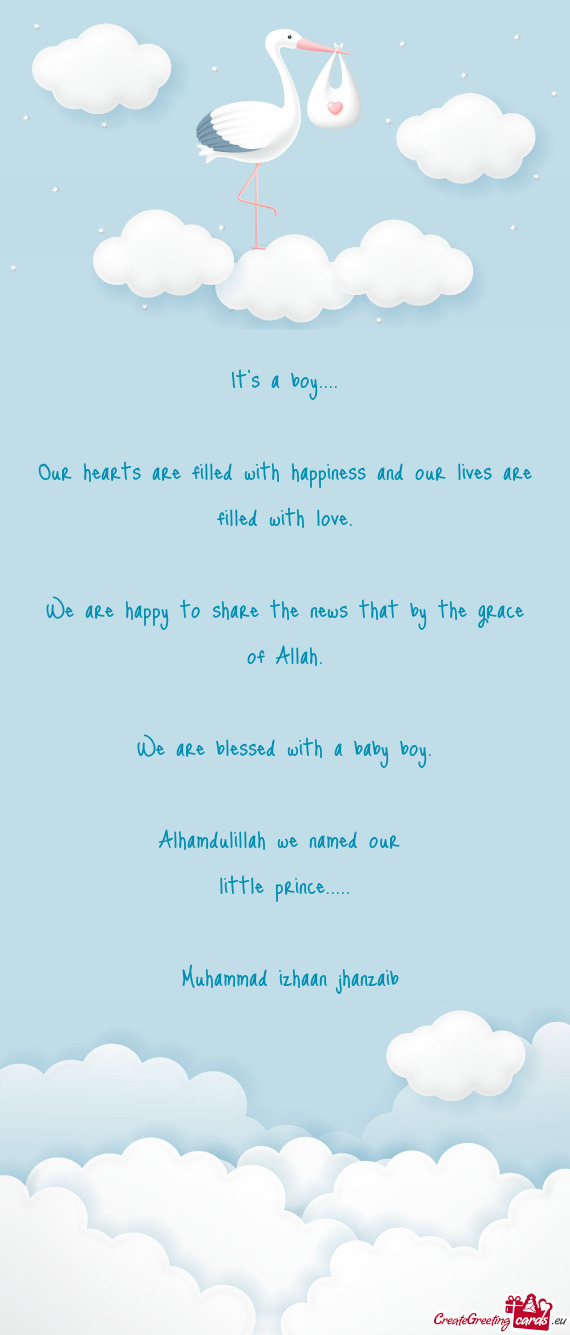 It's a boy....
Our hearts are filled with happiness and our lives are
filled with love.
We are happy to share the news that by the grace
of Allah.
We are blessed with a baby boy.
Alhamdulillah we named our
little prince.....
Muhammad izhaan jhanzaib
CreateGreeting cards .eu